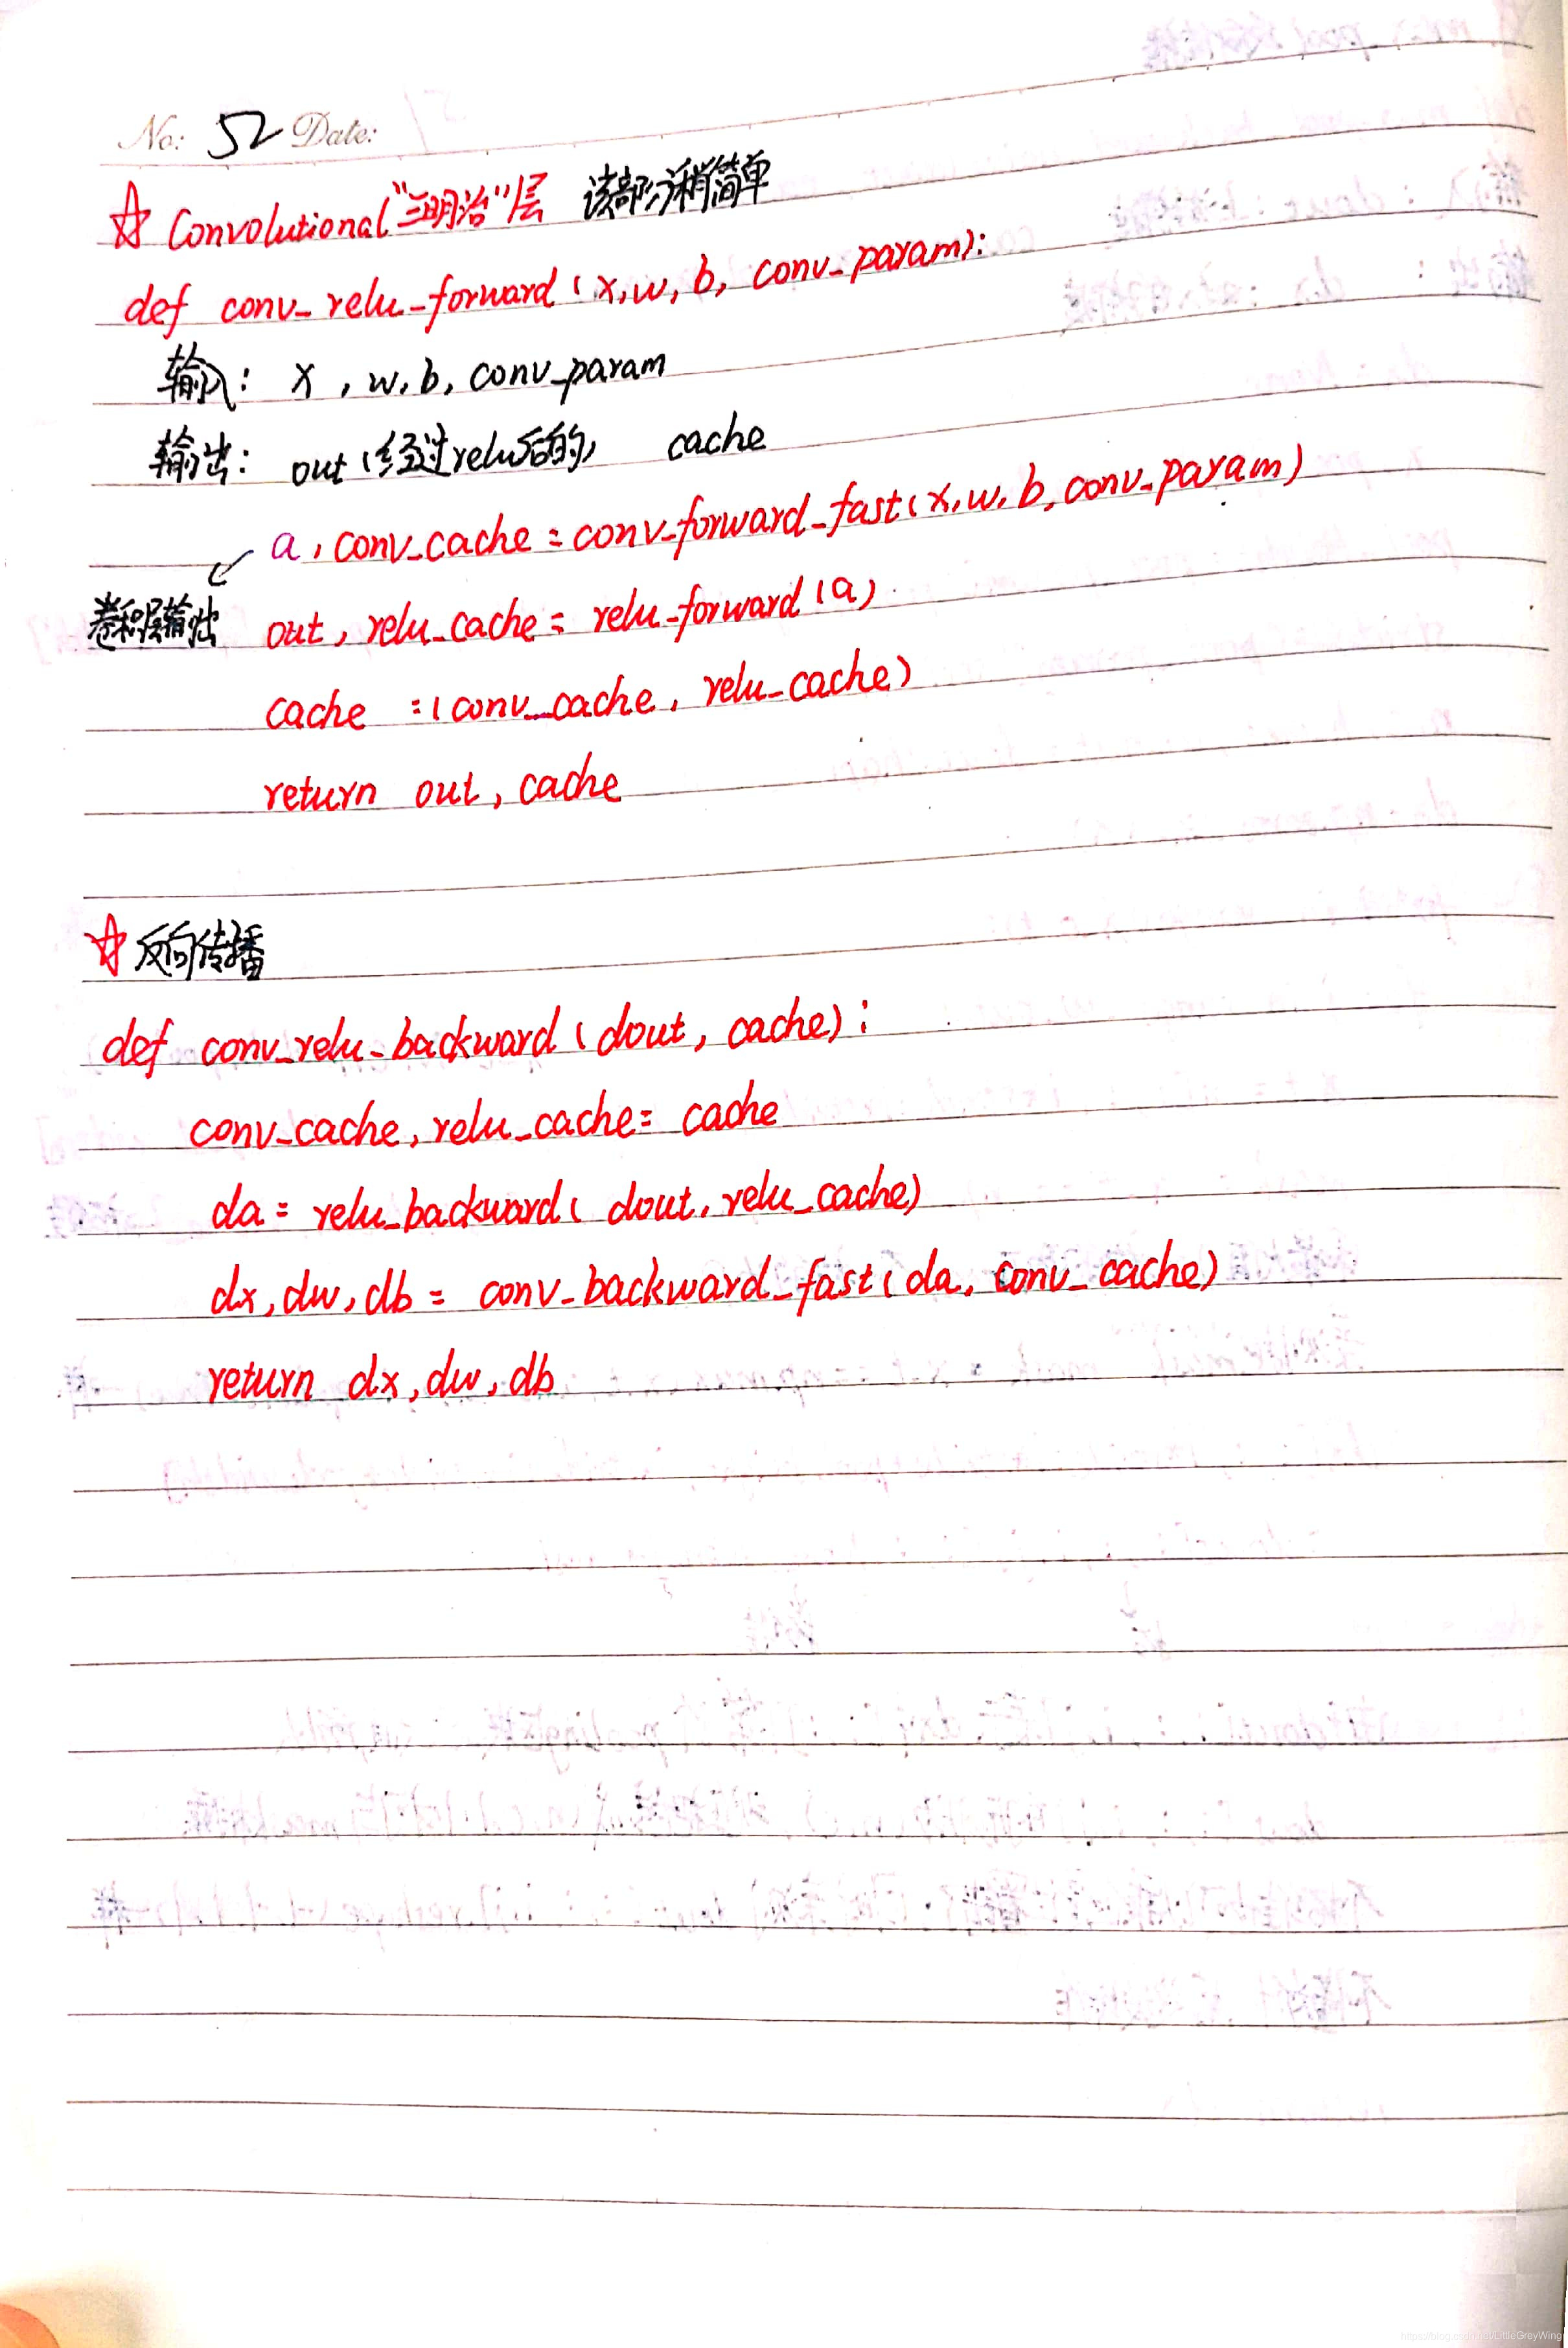 No: 52 Date:
☆ Convolutional "三明治"层 该部分稍简单
def conv_relu_forward(x,w,b,conv_param):
输入: x,w,b,conv_param
输出: out(经过relu后的) cache
a,conv_cache=conv_forward_fast(x,w,b,conv_param)
卷积层输出 out,relu_cache=relu_forward(a)
cache =(conv_cache,relu_cache)
return out,cache
☆反向传播
def conv_relu_backward(dout,cache):
conv_cache,relu_cache=cache
da=relu_backward(dout,relu_cache)
dx,dw,db=conv_backward_fast(da,conv_cache)
return dx,dw,db